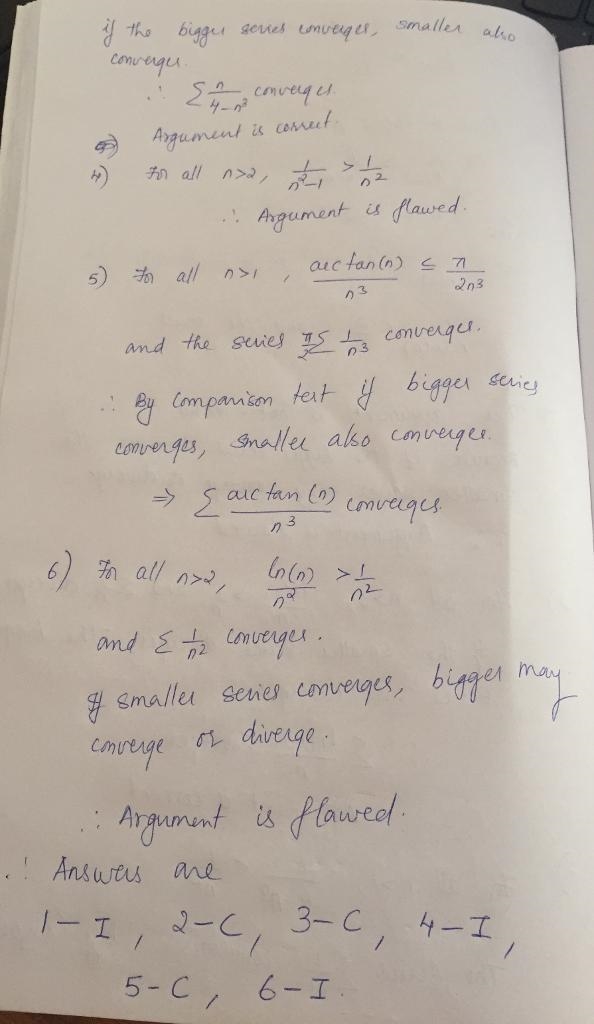 if the bigger series converges, smaller also
converges.
∴ Σ n/(4-n³) converges.
Argument is correct.
4) For all n>2, 1/(n²-1) > 1/n²
∴ Argument is flawed.
5) For all n>1, arctan(n)/n³ ≤ π/2n³
and the series π/2 Σ 1/n³ converges.
∴ By comparison test if bigger series
converges, smaller also converges.
⇒ Σ arctan(n)/n³ converges.
6) For all n>2, ln(n)/n² > 1/n²
and Σ 1/n² converges.
If smaller series converges, bigger may
converge or diverge.
∴ Argument is flawed.
∴ Answers are
1-I, 2-C, 3-C, 4-I,
5-C, 6-I.